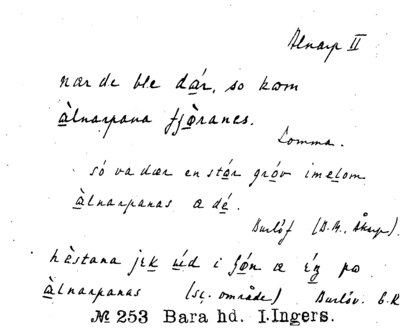 Alnarp II
nær de ble dár, so kom
àlnarpana fjø̀ranes.
Lomma.
só va dær en stór gróv imelom
àlnarpanas æ dé.
Burlöf (B.R., Åkarp).
hèstana jek úd i
àlnarpanas (sc. område) Burlöv. E.R
№ 253 Bara hd. I.Ingers.